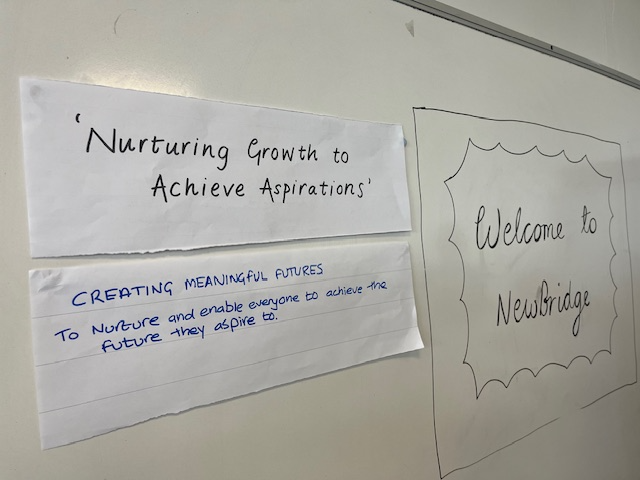 'Nurturing Growth to
Achieve Aspirations'
CREATING MEANINGFUL FUTURES
To Nurture and enable everyone to achieve the
future they aspire to.
Welcome to
NewBridge